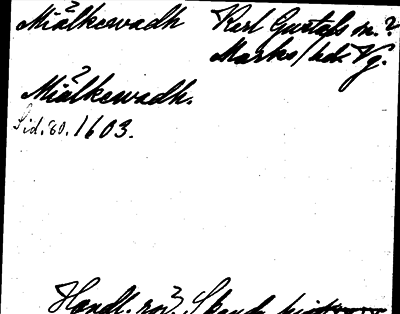 Miälkewadh Karl Gustafs sn.?
Marks hd. Vg.
Miälkewadh.
Sid. 80. 1603.
Handl. rör. Skand. hist